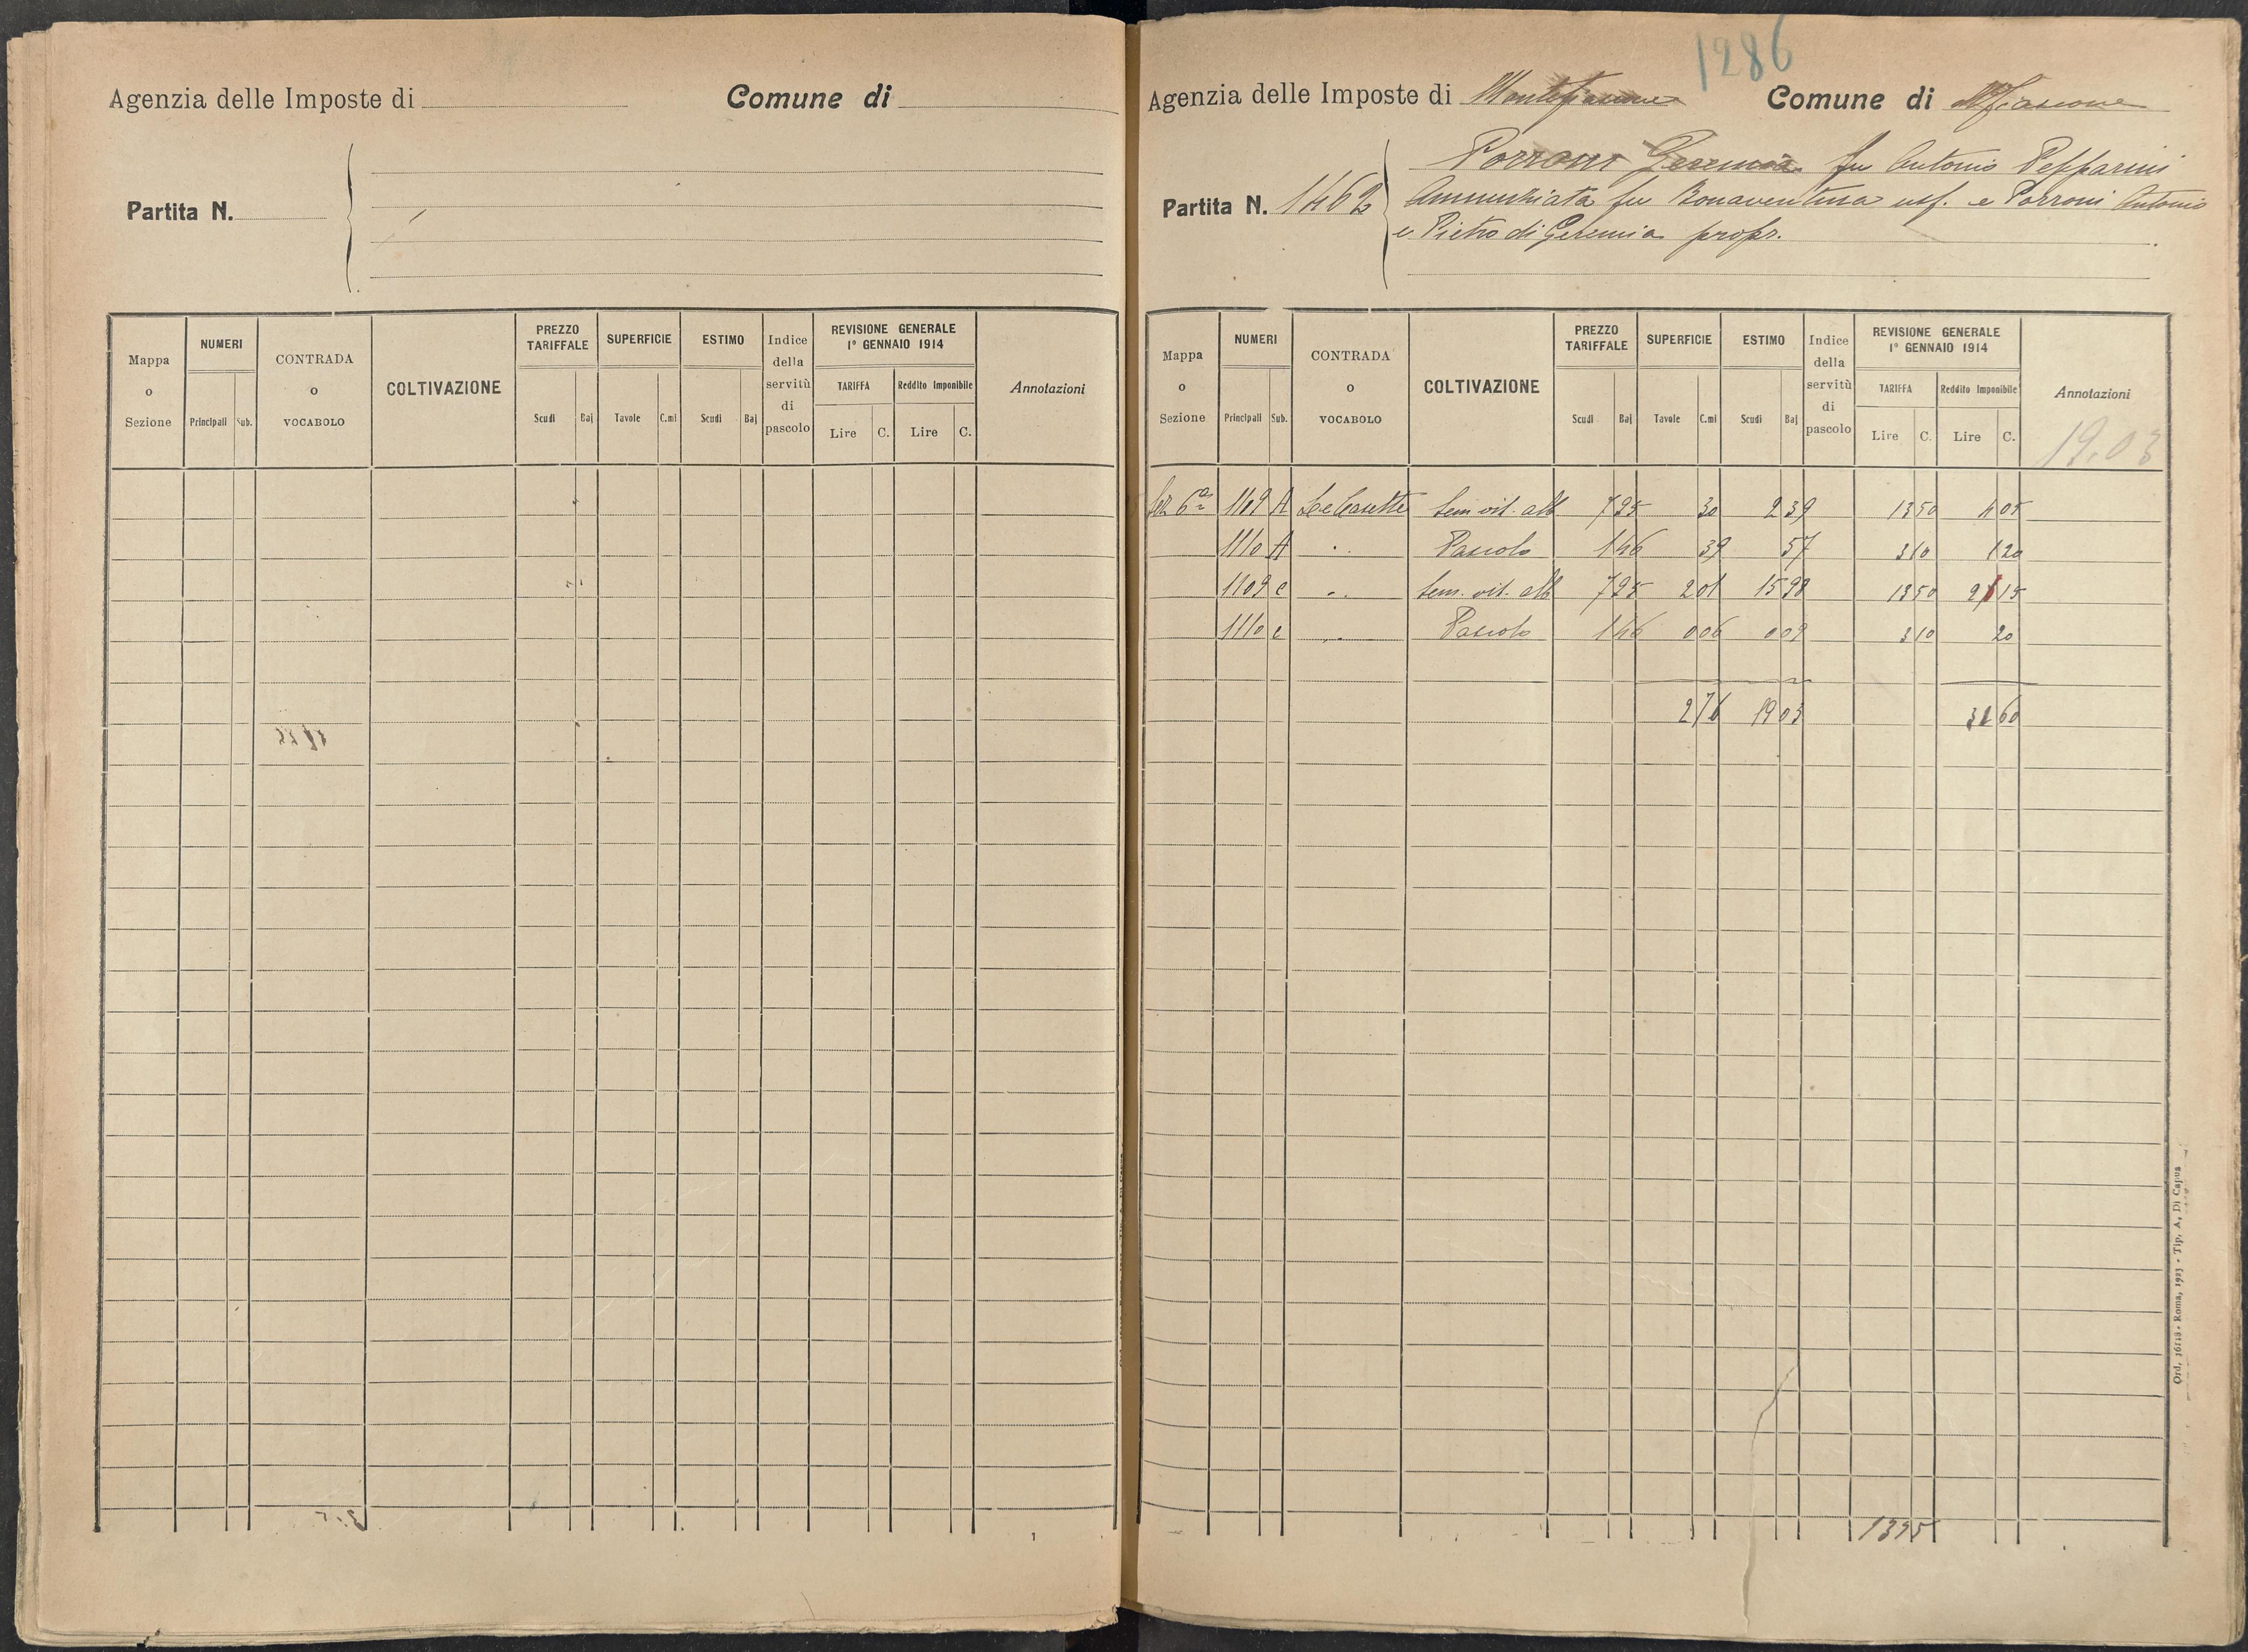 Agenzia delle Imposte di
Comune di
Partita N.
Mappa o Sezione
NUMERI
Principali Sub.
CONTRADA o VOCABOLO
COLTIVAZIONE
PREZZO TARIFFALE
Scudi Baj
SUPERFICIE
Tavole C.mi
ESTIMO
Scudi Baj
Indice della servitù di pascolo
REVISIONE GENERALE 1° GENNAIO 1914
TARIFFA
Lire C.
Reddito Imponibile
Lire C.
Annotazioni
1286
Agenzia delle Imposte di Montefiascone
Comune di Mfiascone
Partita N. 1462
Porroni Geremia fu Antonio Pepparini
Annunziata fu Bonaventura usf. e Porroni Antonio
e Pietro di Geremia propr.
Mappa o Sezione
NUMERI
Principali Sub.
CONTRADA o VOCABOLO
COLTIVAZIONE
PREZZO TARIFFALE
Scudi Baj
SUPERFICIE
Tavole C.mi
ESTIMO
Scudi Baj
Indice della servitù di pascolo
REVISIONE GENERALE 1° GENNAIO 1914
TARIFFA
Lire C.
Reddito Imponibile
Lire C.
Annotazioni
19.03
Sez 6a 1109 A Le Casette Sem vit. alb 7 95 30 2 39 13 50 4 05
1110 A " Pascolo 1 46 39 57 3 10 1 20
1109 c " Sem. vit. alb 7 95 2 01 15 98 13 50 27 15
1110 c " Pascolo 1 46 0 06 0 09 3 10 20
2 76 19 03 32 60
1395
Ord. 16118 - Roma, 1923 - Tip. A. Di Capua